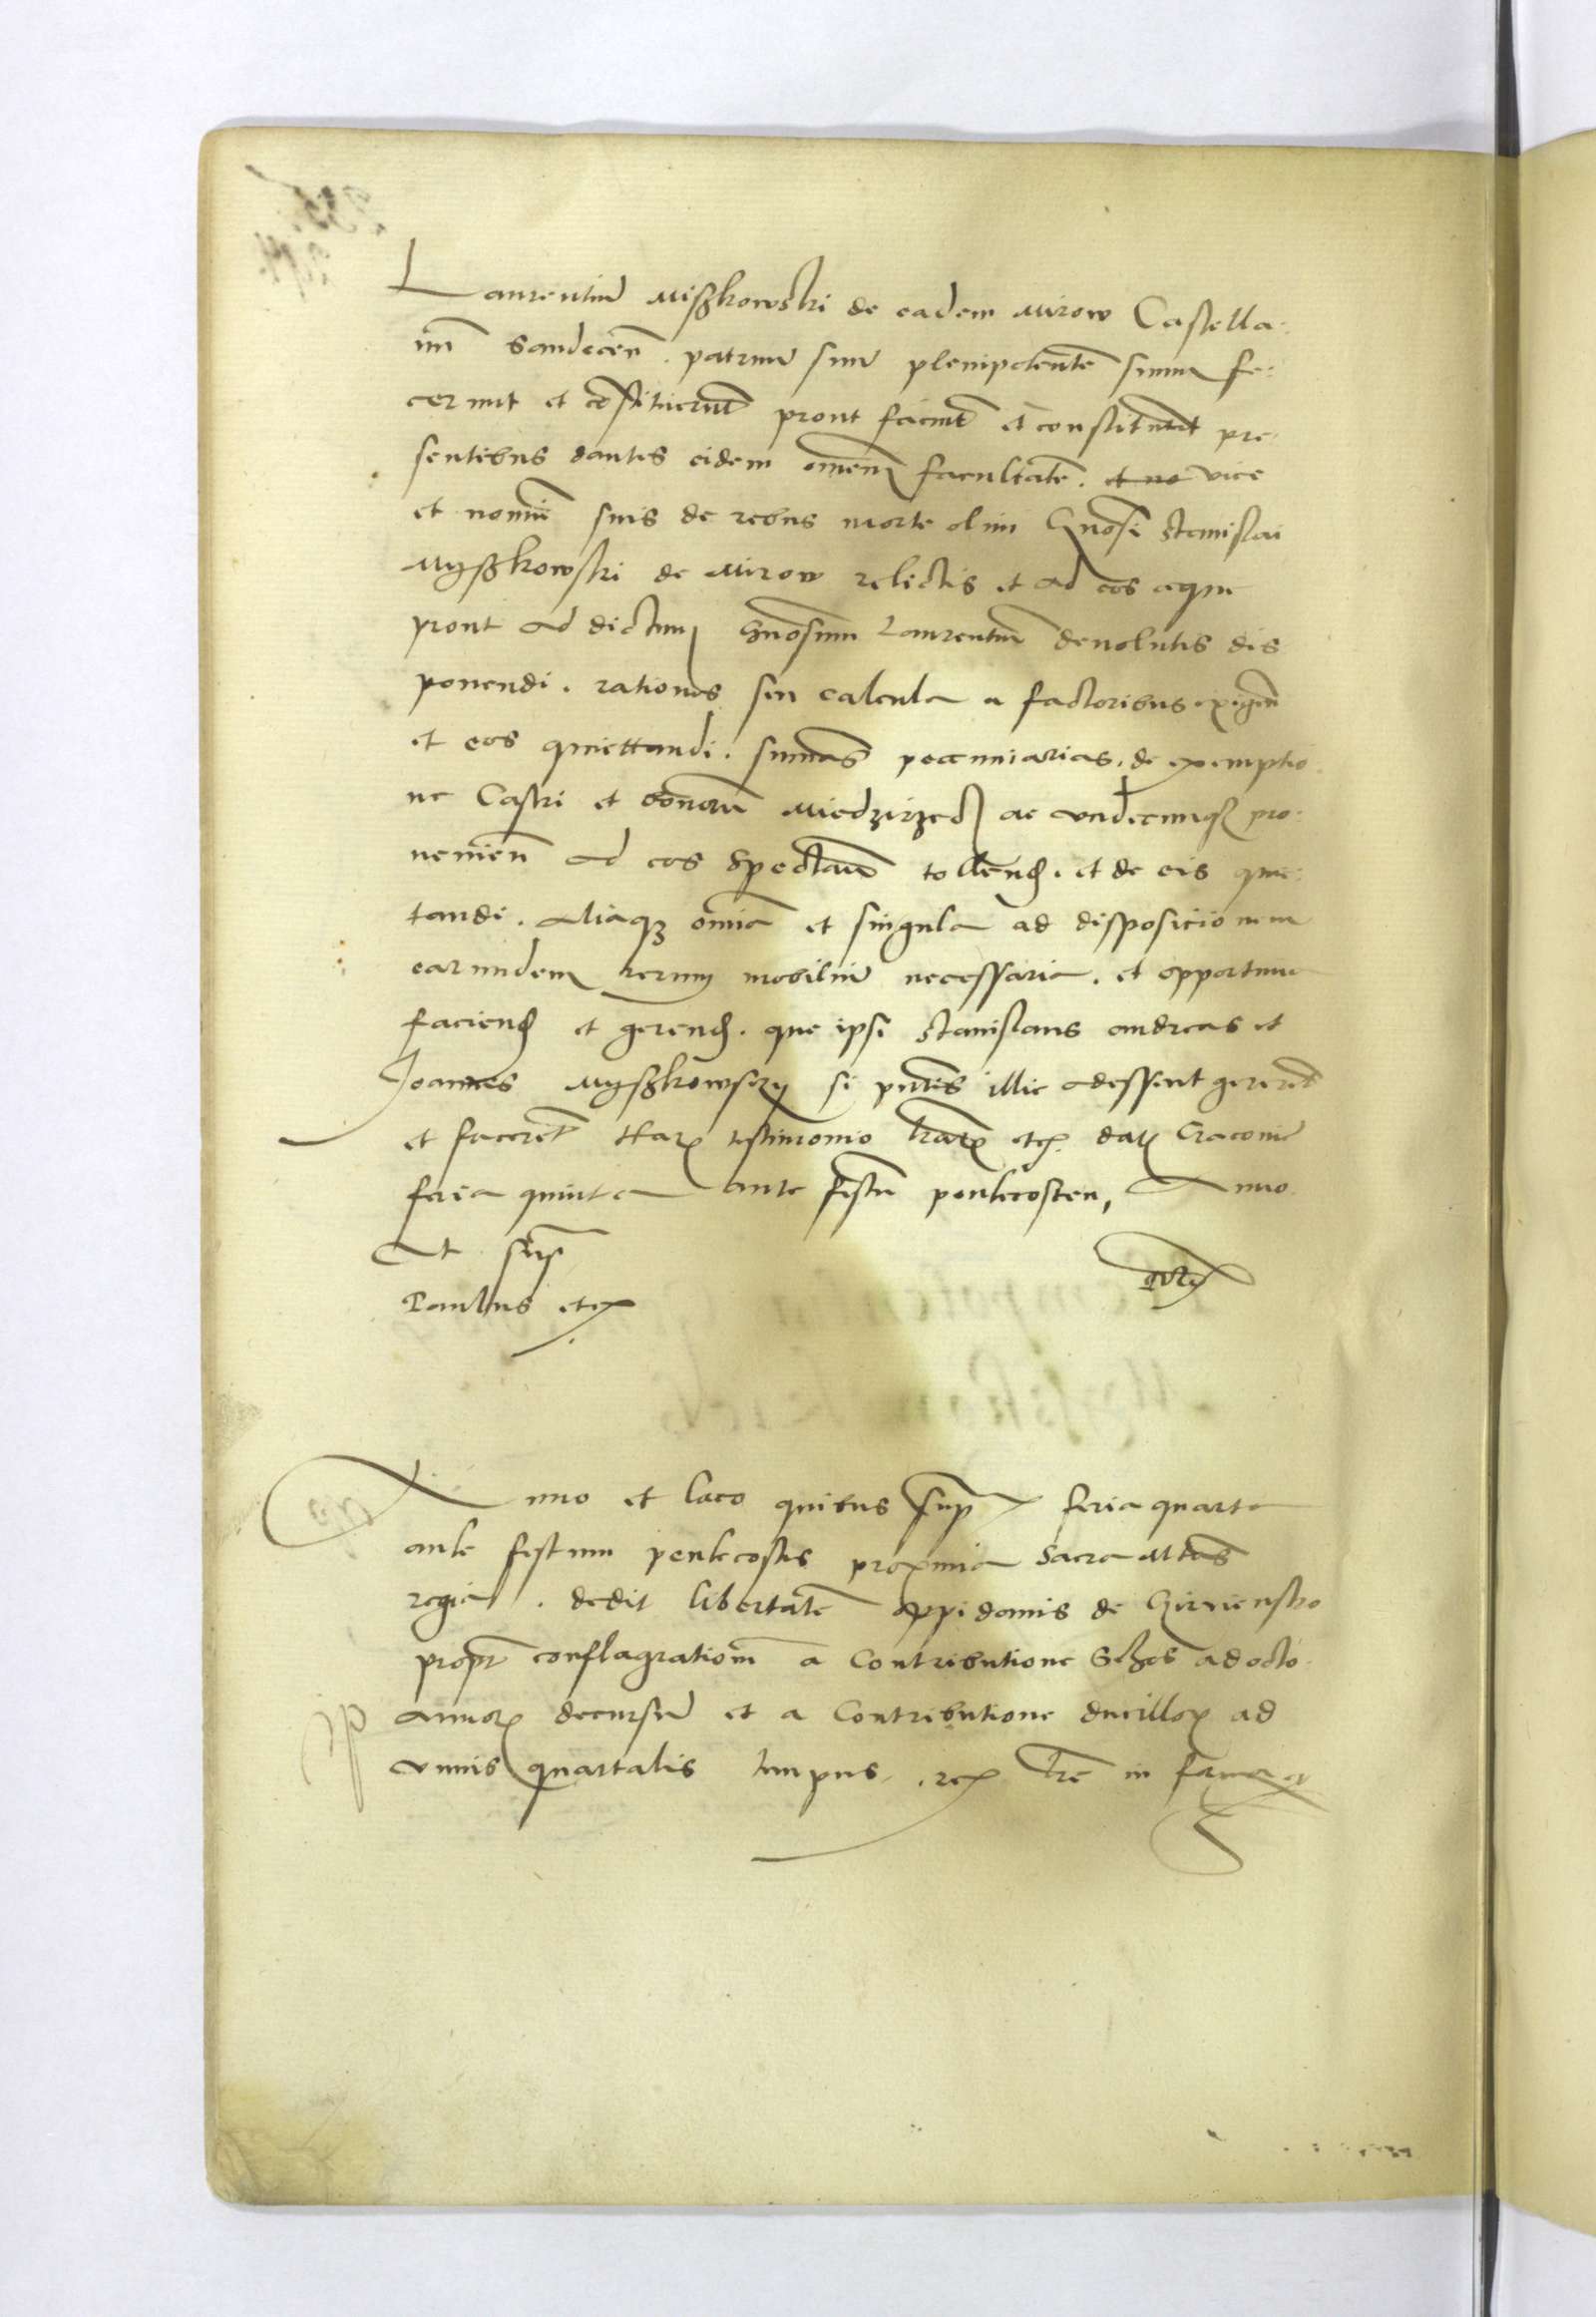 Laurentiu Mißkowski de eadem Mirow Castella:
nu Sandecen. patruu suu plenipotente suum fe:
cerunt et costituerut prout faciut et constituut pre
sentibus dantes eidem omnem facultate. et no vice
et nomie suis de rebus morte olim Gnosi Stanislai
Myßkowski de Mirow relictis et ad eos eque
prout ad dictum Gnosum Laurentiu deuolutis dis
ponendi. rationes seu calcula a factoribus exigen
et eos quiettandi. sumas pecuniarias. de exemptio
ne Castri et bonoru Miedzirzecz ac undecunqz pro:
uenien ad eos spectan tollend. et de eis quie:
tandi. aliaqz omia et singula ad disposicionem
earundem rerum mobiliu necessaria. et opportuna
faciend et gerend. que ipsi Stanislaus andreas et
Joannes Myßkowsczy si pntes illic adessent gereret
et faceret Harz testimonio lrarz etc. datz Cracouie
feria quinta ante festu pentecosten, Anno
Ut supra
Paulus etc
Anno et loco quibus sup feria quarta
ante festum pentecostes proxima Sacra Mtas
regia. dedit libertate oppidanis de
propt conflagrationem a Contributione Schos ad octo
annorz decursu et a Contributione ducillorz ad
unius quartalis tempus. lre in forma